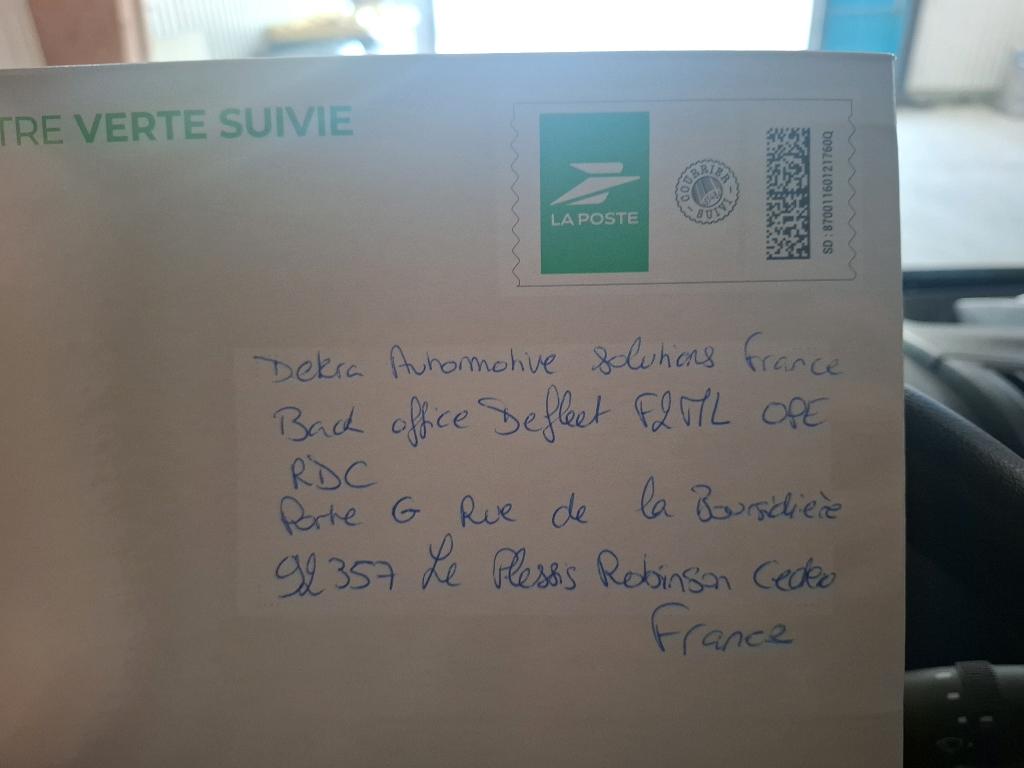 TRE VERTE SUIVIE
LA POSTE
COURRIER SUIVI
SD : 87001160121760Q
Dekra Automotive solutions France
Back office Defleet F2ML OPE
RDC
Porte G Rue de la Boursidière
92357 Le Plessis Robinson Cedex
France